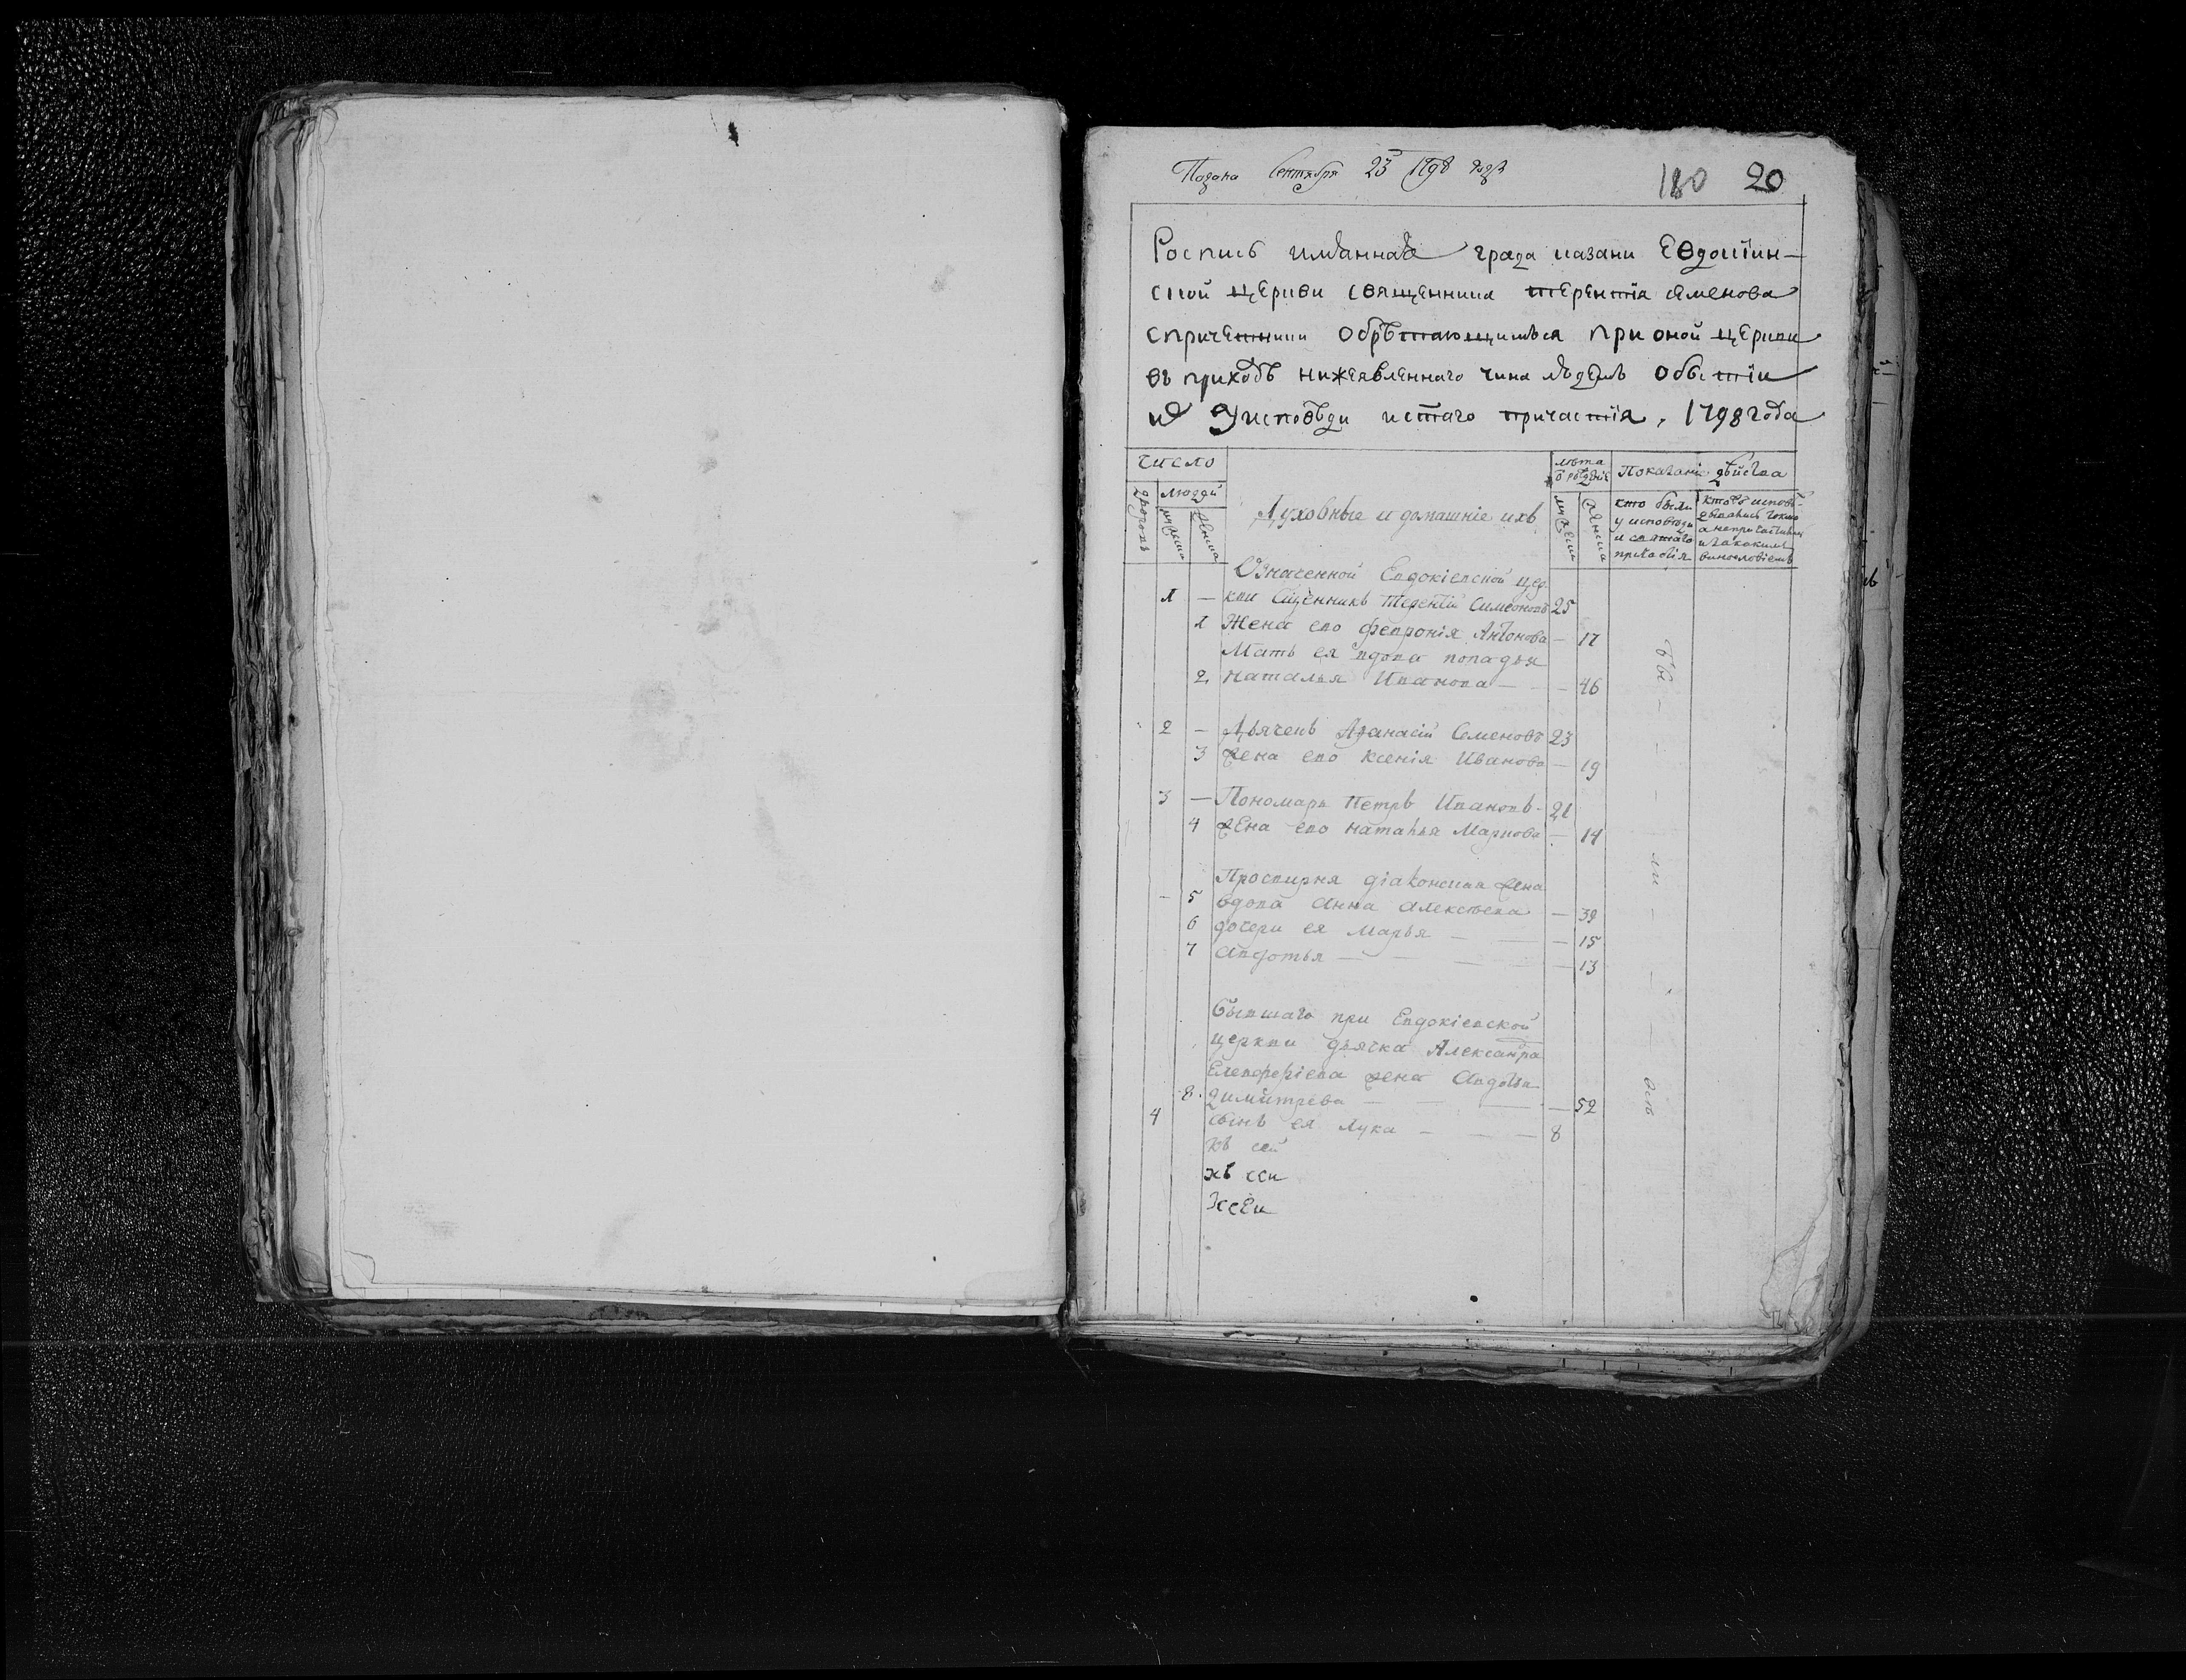 Подана Сентября 23 1798 года
180 20
Роспись имяннаѧ града казани Евдокіин-
ской церкви священника терентїя семенова
спричетники обрѣтающимися при оной церкви
въ приходѣ нижеявленнаго чина людемъ обытїи
ихъ у исповѣди и стаго причастїя, 1798 года
число
лѣта ѿ рождѣніѧ
Показаніе дѣйства
дворовъ
людей
мужеска
женска
Духовные и домашніе ихъ
мужеска
женска
кто были
у исповѣди
и святаго
причастія
кто исповѣ-
дывались токмо
а непричастились
и закакимъ
винословіемъ
Означенной Евдокіевской цер-
1 — кви Сщенникъ Терентїй Симеоновъ 25
1 Жена ево феѵронія Антонова — 17
Мать ея вдова попадья
2 Наталья Иванова — — 46
2 — Дьячекъ Аѳанасїй Семеновъ 23
3 Жена ево Ксенія Иванова — 19
3 — Пономарь Петръ Ивановъ - 21
4 Жена ево Наталья Маркова — 14
Просвирня діаконская жена
5 вдова Анна Алексѣева — 39
6 дочери ея Марья — — — 15
7 Авдотья — — — — 13
Бывшаго при Евдокіевской
церкви дьячка Александра
Елевферіева жена Авдотья
8 димитрева — — — 52
4 Сынъ ея Лука — — — 8
хв сей
хв сеи
Хсеи
бы — — — ли — — — — всѣ